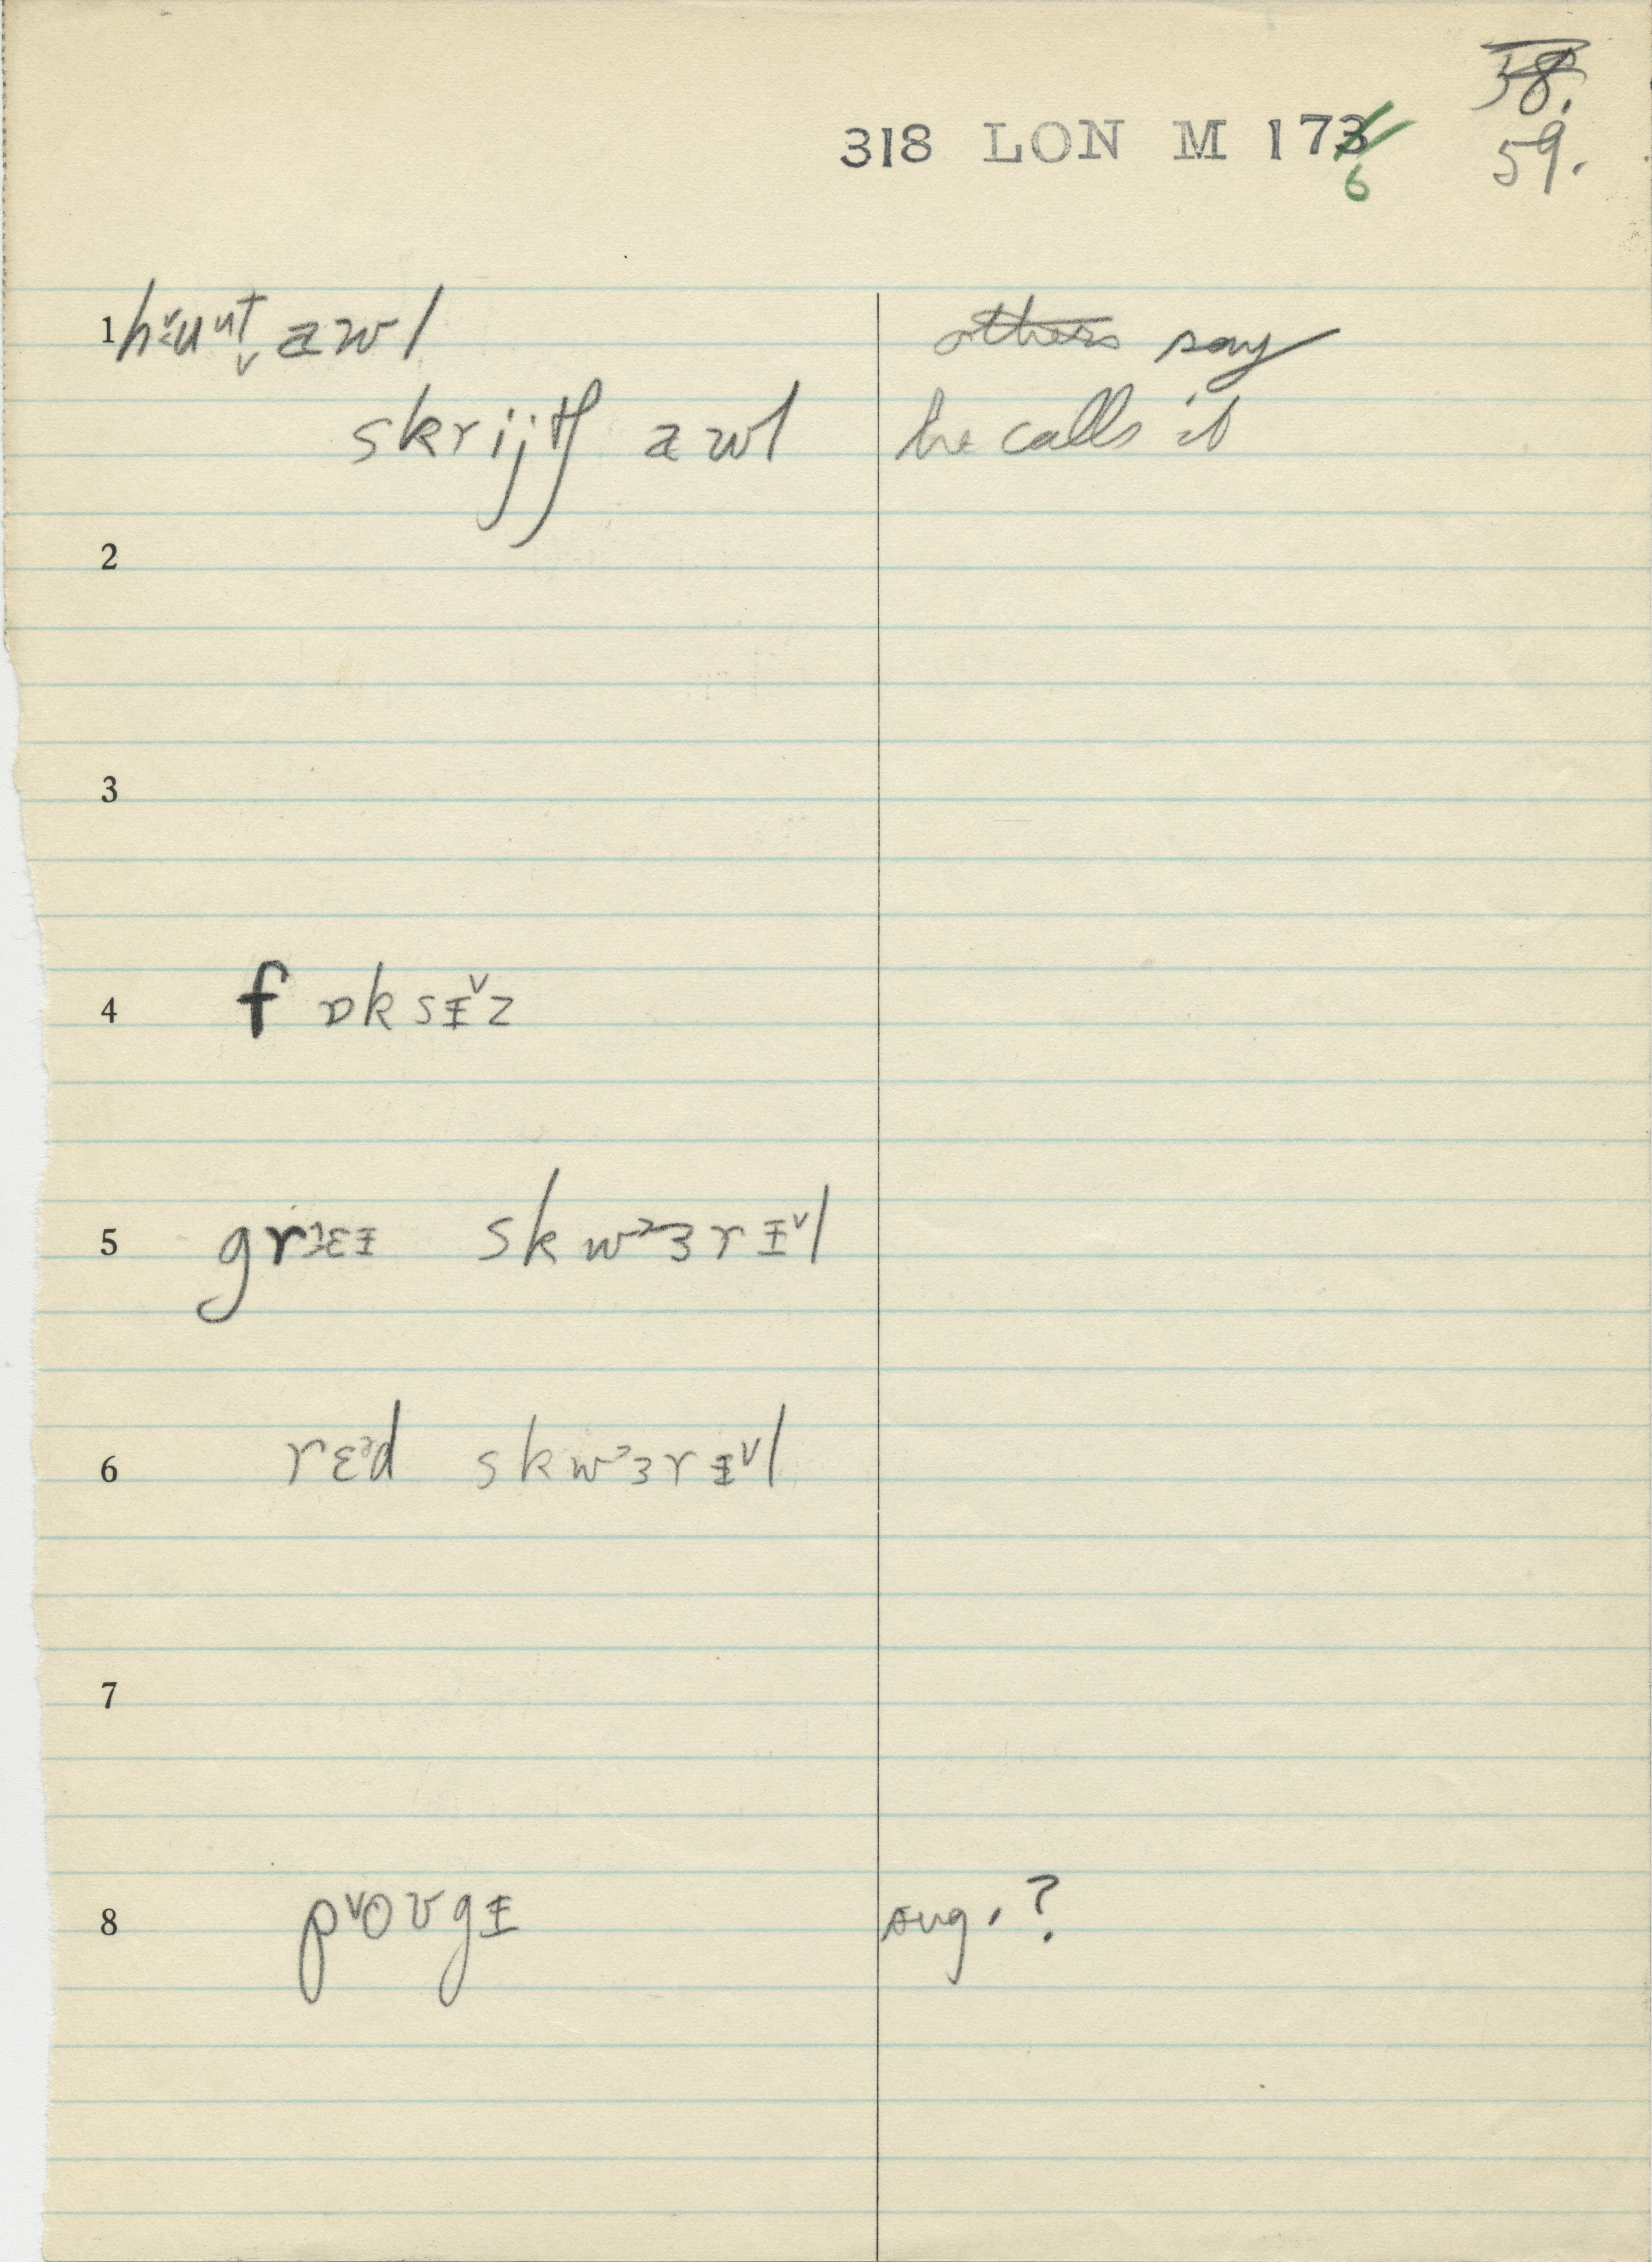 58.
318 LON M 173
6
59.
1 hɨ˅uⁿt̬ awl others say
skrijtʃ awl he calls it
2
3
4 fɒksɨ˅z
5 grᵊɛɨ skwᵊɜrɨ˅l
6 rɛᵊd skwᵊɜrɨ˅l
7
8 p˅oʊgɨ sug.?